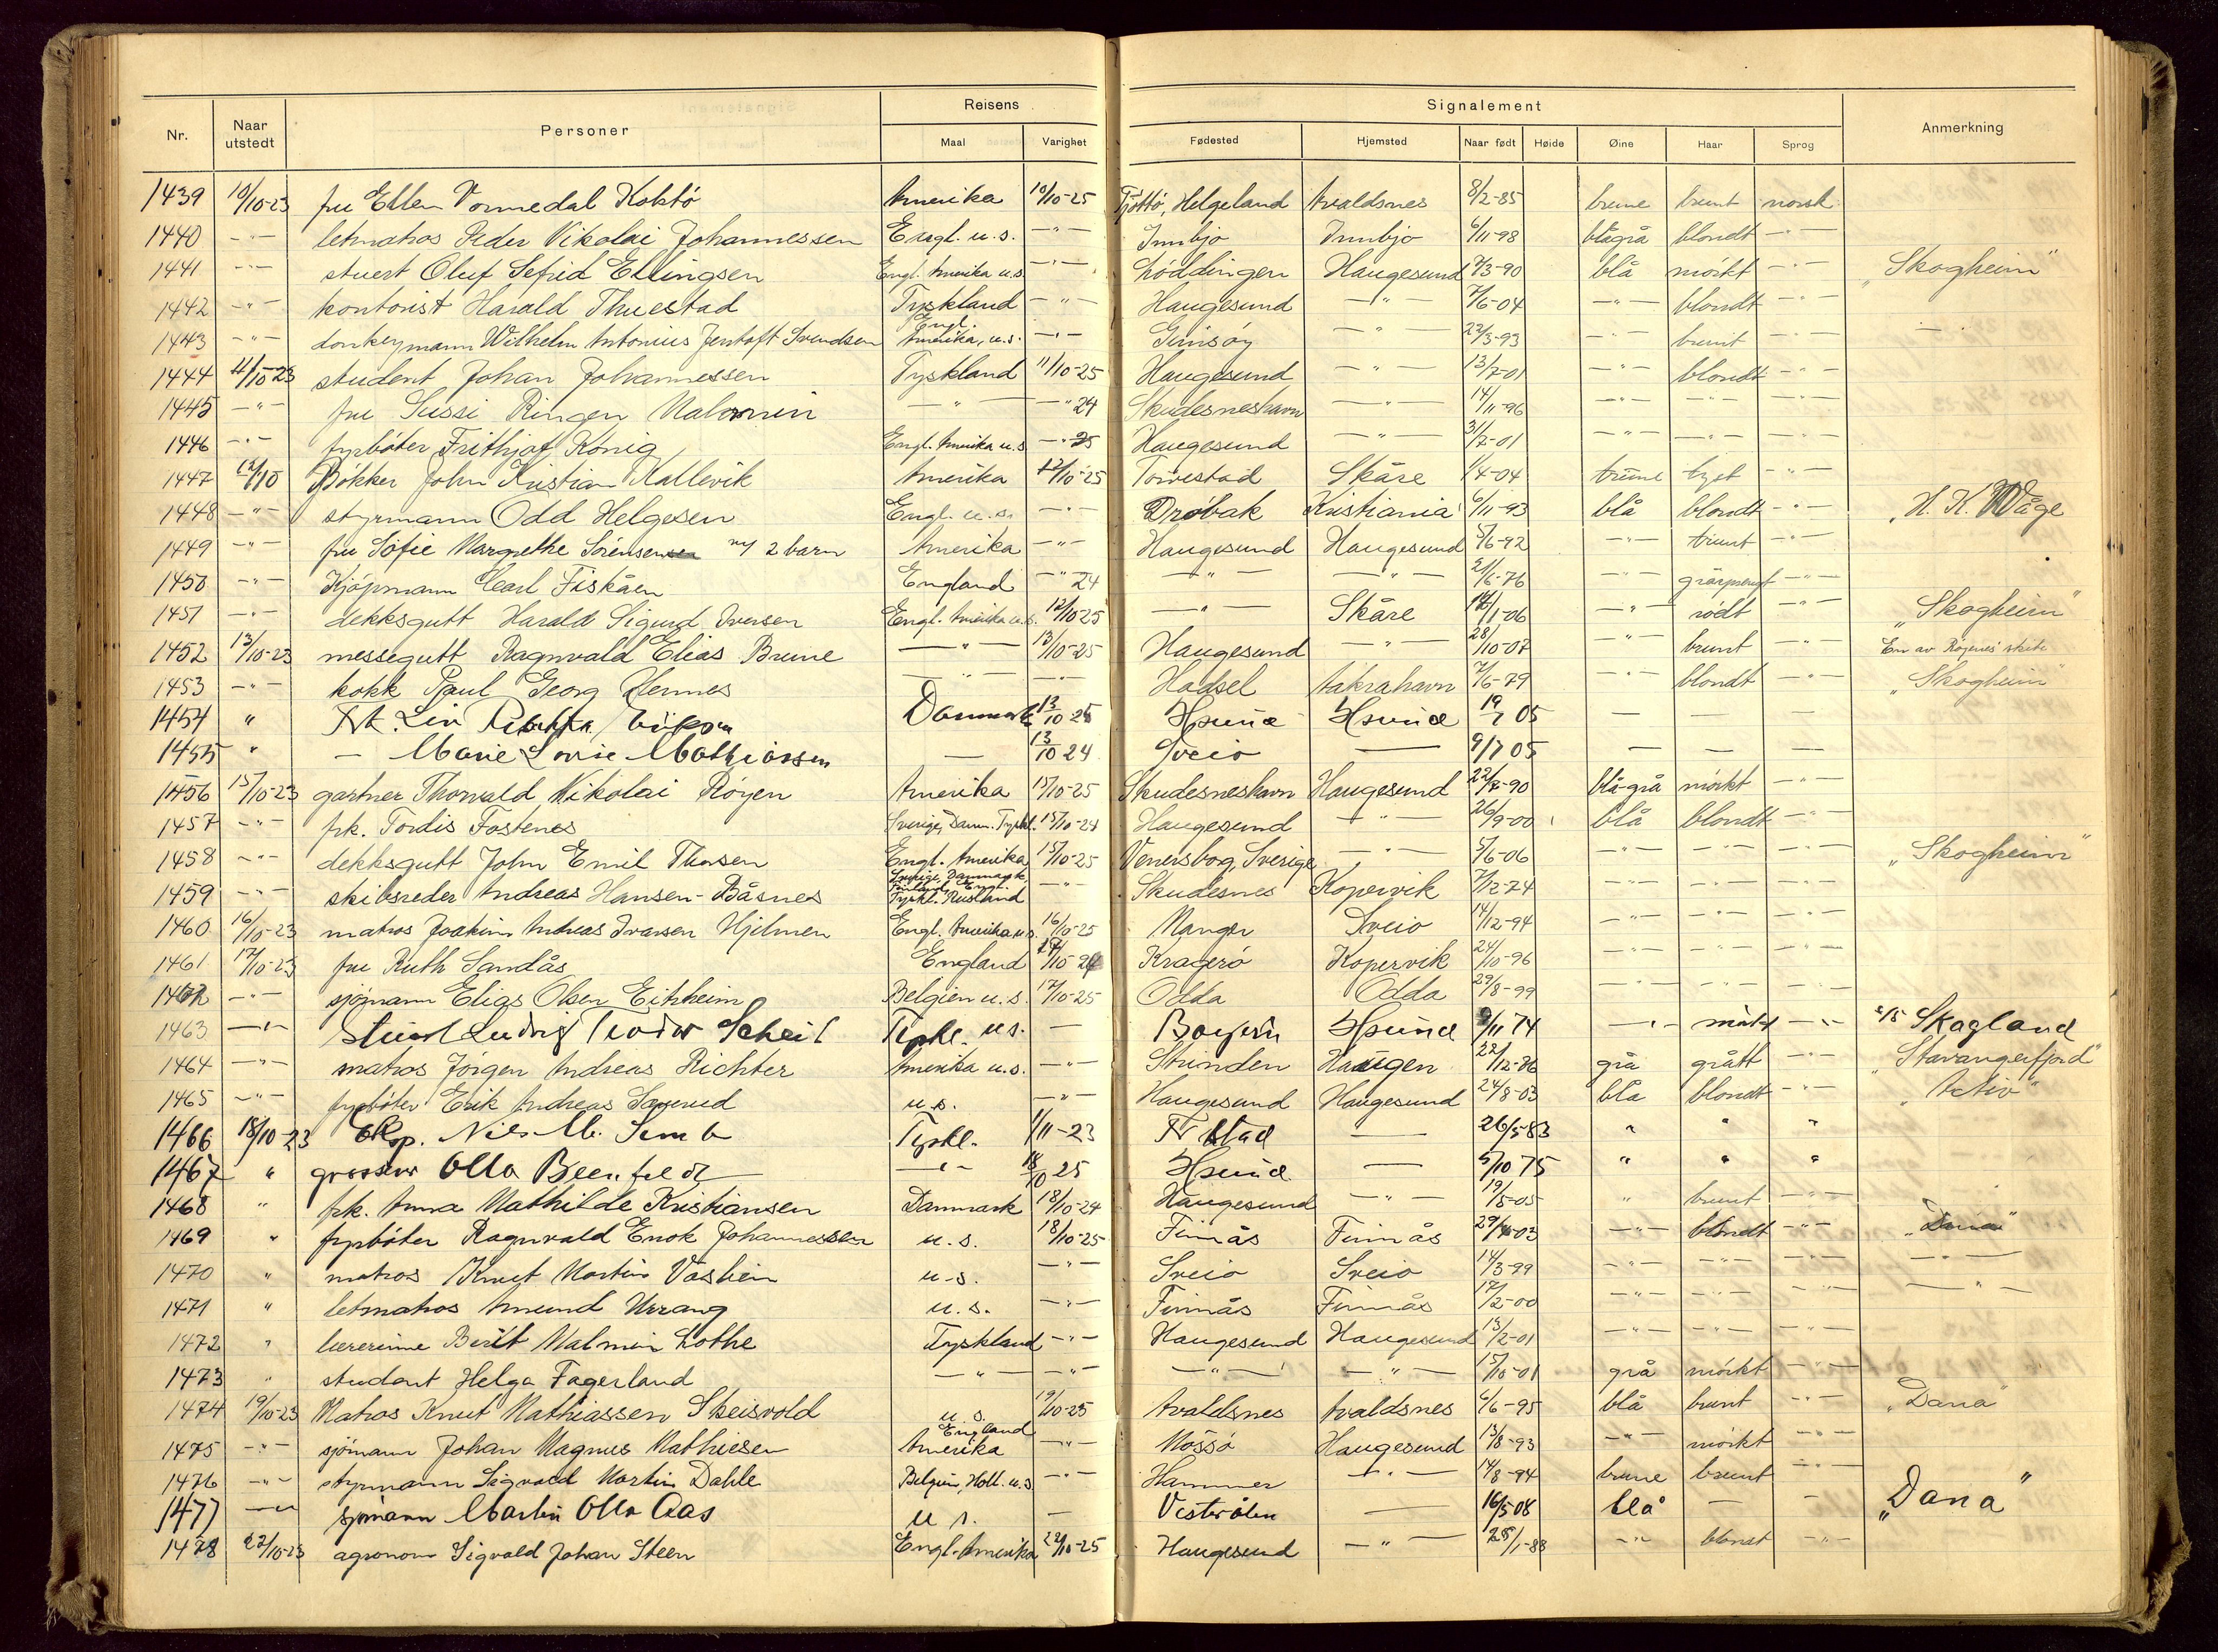 Reisens Signalement
Nr. Naar utstedt Personer Maal Varighet Fødested Hjemsted Naar født Høide Øine Haar Sprog Anmerkning
1439 10/10-23 fru Ellen Vormedal Koktó Amerika 10/10-25 Tjöttö, Helgeland Avaldsnes 8/2-85 brune brunt norsk
1440 -"- letmatros Peder Nikolai Johannessen Engl. u.s. -"- Innbjo Innbjo 6/11-98 blågrå blondt -"-
1441 -"- stuert Oluf Sefrid Ellingsen Engl. Amerika u.s. -"- Lóddingen Haugesund 7/3-90 blå mórkt -"- "Skogheim"
1442 -"- kontorist Harald Thuestad Tyskland -"- Haugesund -"- 7/6-04 -"- blondt -"-
1443 -"- donkeymann Wilhelm Antonius Jentoft Svendsen Engl. Amerika, u.s. -"- Gimsóy -"- 22/3-93 -"- brunt -"-
1444 11/10-23 student Johan Johannessen Tyskland 11/10-25 Haugesund -"- 13/7-01 -"- blondt -"-
1445 -"- fru Sussi Ringen Malmin -"- -"- 24 Skudesneshavn -"- 14/11-96 -"- -"- -"-
1446 -"- fyrbóter Frithjof König Engl. Amerika u.s. -"- 25 Haugesund -"- 31/7-01 -"- -"- -"-
1447 12/10 Bókker John Kristian Kallevik Amerika 12/10-25 Torvestad Skåre 1/4-04 brune lyst -"-
1448 -"- styrmann Odd Helgesen Engl. u.s. -"- Dróbak Kristiania 6/11-93 blå blondt -"- "H. K. Wåge
1449 -"- fru Sofie Margrethe Sórensen m/ 2 barn Amerika -"- Haugesund Haugesund 5/6-92 -"- brunt -"-
1450 -"- Kjópmann Carl Fiskåen England -"- 24 -"- -"- 21/6-76 -"- gråsprengt -"-
1451 -"- dekksgutt Harald Sigurd Iversen Engl. Amerika u.s. 12/10-25 -"- Skåre 14/1-06 -"- ródt -"- "Skogheim"
1452 13/10-23 messegutt Ragnvald Elias Brune -"- 13/10-25 Haugesund -"- 28/10-07 -"- brunt -"- En av Róyenes skibe
1453 -"- kokk Paul Georg Hennes -"- -"- Hadsel Åkrahavn 7/6-79 -"- blondt -"- "Skogheim"
1454 " Frk. Liv Danmark 13/10 25 Hsund Hsund 19/7 05 — — —
1455 " — Marie Lovise Mathiassen — 13/10 24 Sveio — 9/7 05 — — —
1456 15/10-23 gartner Thorvald Nikolai Róyen Amerika 15/10-25 Skudesneshavn Haugesund 22/7-90 blå-grå mórkt -"-
1457 -"- frk. Tordis Fostenes Sverige, Danm. Tyskl. 15/10-24 Haugesund -"- 26/9-00 blå blondt -"-
1458 -"- dekksgutt John Emil Thorsen Engl. Amerika 15/10-25 Venersborg, Sverige -"- 5/6-06 -"- -"- -"- "Skogheim"
1459 -"- skibsreder Andreas Hansen-Båsnes Sverige, Danmark, Finland, Engl. Tyskl. Rusland -"- Skudesnes Kopervik 7/12-74 -"- -"- -"-
1460 16/10-23 matros Joakim Andreas Ivarsen Hjelmen Engl. Amerika u.s. 16/10-25 Manger Sveio 14/12-94 -"- -"- -"-
1461 17/10-23 fru Ruth Sandås England 17/10-24 Krageró Kopervik 24/10-96 -"- -"- -"-
1462 -"- sjómann Elias Olsen Eitrheim Belgien u.s. 17/10-25 Odda Odda 29/8-99 -"- -"- -"-
1463 -"- Stuert Ludvig Teodor Scheil Tyskl. u.s. — Bayern Hsund 9/11 74 -"- mórkt -"- s/s Skagland
1464 -"- matros Jórgen Andreas Richter Amerika u.s. -"- Strinden Haugen 22/12-86 grå grått -"- "Stavangerfjord"
1465 -"- fyrbóter Erik Andreas u.s. -"- Haugesund Haugesund 24/8-03 blå blondt -"- "Activ"
1466 18/10-23 Eksp. Nils M. Tyskl. 1/11-23 Frstad — 26/5-83 " " "
1467 " grosserer Otto Beenfeldt -"- 18/10 25 Hsund — 5/10 75 " " "
1468 " frk. Anna Mathilde Kristiansen Danmark 18/10-24 Haugesund -"- 19/5-05 " brunt -"-
1469 " fyrbóter Ragnvald Enok Johannessen u.s. 18/10-25 Finnås Finnås 29/4-03 -"- blondt -"- "Dana"
1470 " matros Knut Martin u.s. -"- Sveio Sveio 14/3-99 -"- -"- -"- -"-
1471 " letmatros Amund Urrang u.s. -"- Finnås Finnås 17/2-00 -"- -"- -"- -"-
1472 " lærerinne Berit Malmin Lothe Tyskland -"- Haugesund Haugesund 13/2-01 -"- -"- -"-
1473 " student Helga Fagerland -"- -"- -"- -"- 15/10-01 grå mórkt -"-
1474 19/10-23 Matros Knut Mathiassen Skeisvold u.s. 19/10-25 Avaldsnes Avaldsnes 6/6-95 blå brunt -"- "Dana"
1475 -"- sjómann Johan Magnus Mathiesen England Amerika -"- Mossó Haugesund 13/8-93 -"- mórkt -"-
1476 -"- styrmann Sigvald Martin Dahle Belgien, Holl. u.s. -"- Hammer -"- 14/8-94 brune brunt -"-
1477 -"- sjömann Martin Otto Aas u s. — Vesterålen — 16/5 08 blå — - "Dana"
1478 22/10-23 agronom Sigvald Johan Steen Engl. Amerika 22/10-25 Haugesund -"- 25/1-88 -"- blondt -"-